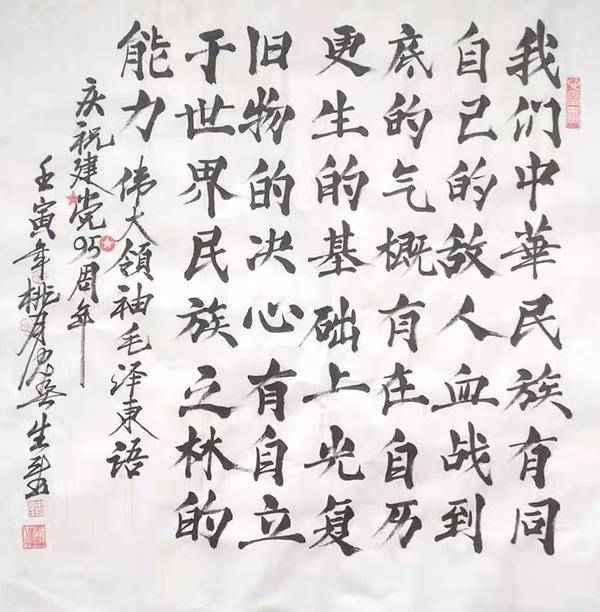 我们中華民族有同
自己的敌人血战到
底的气概有在自历
更生的基础上光复
旧物的决心有自立
于世界民族之林的
能力 伟大領袖毛泽東语
庆祝建党95周年
壬寅年桃月